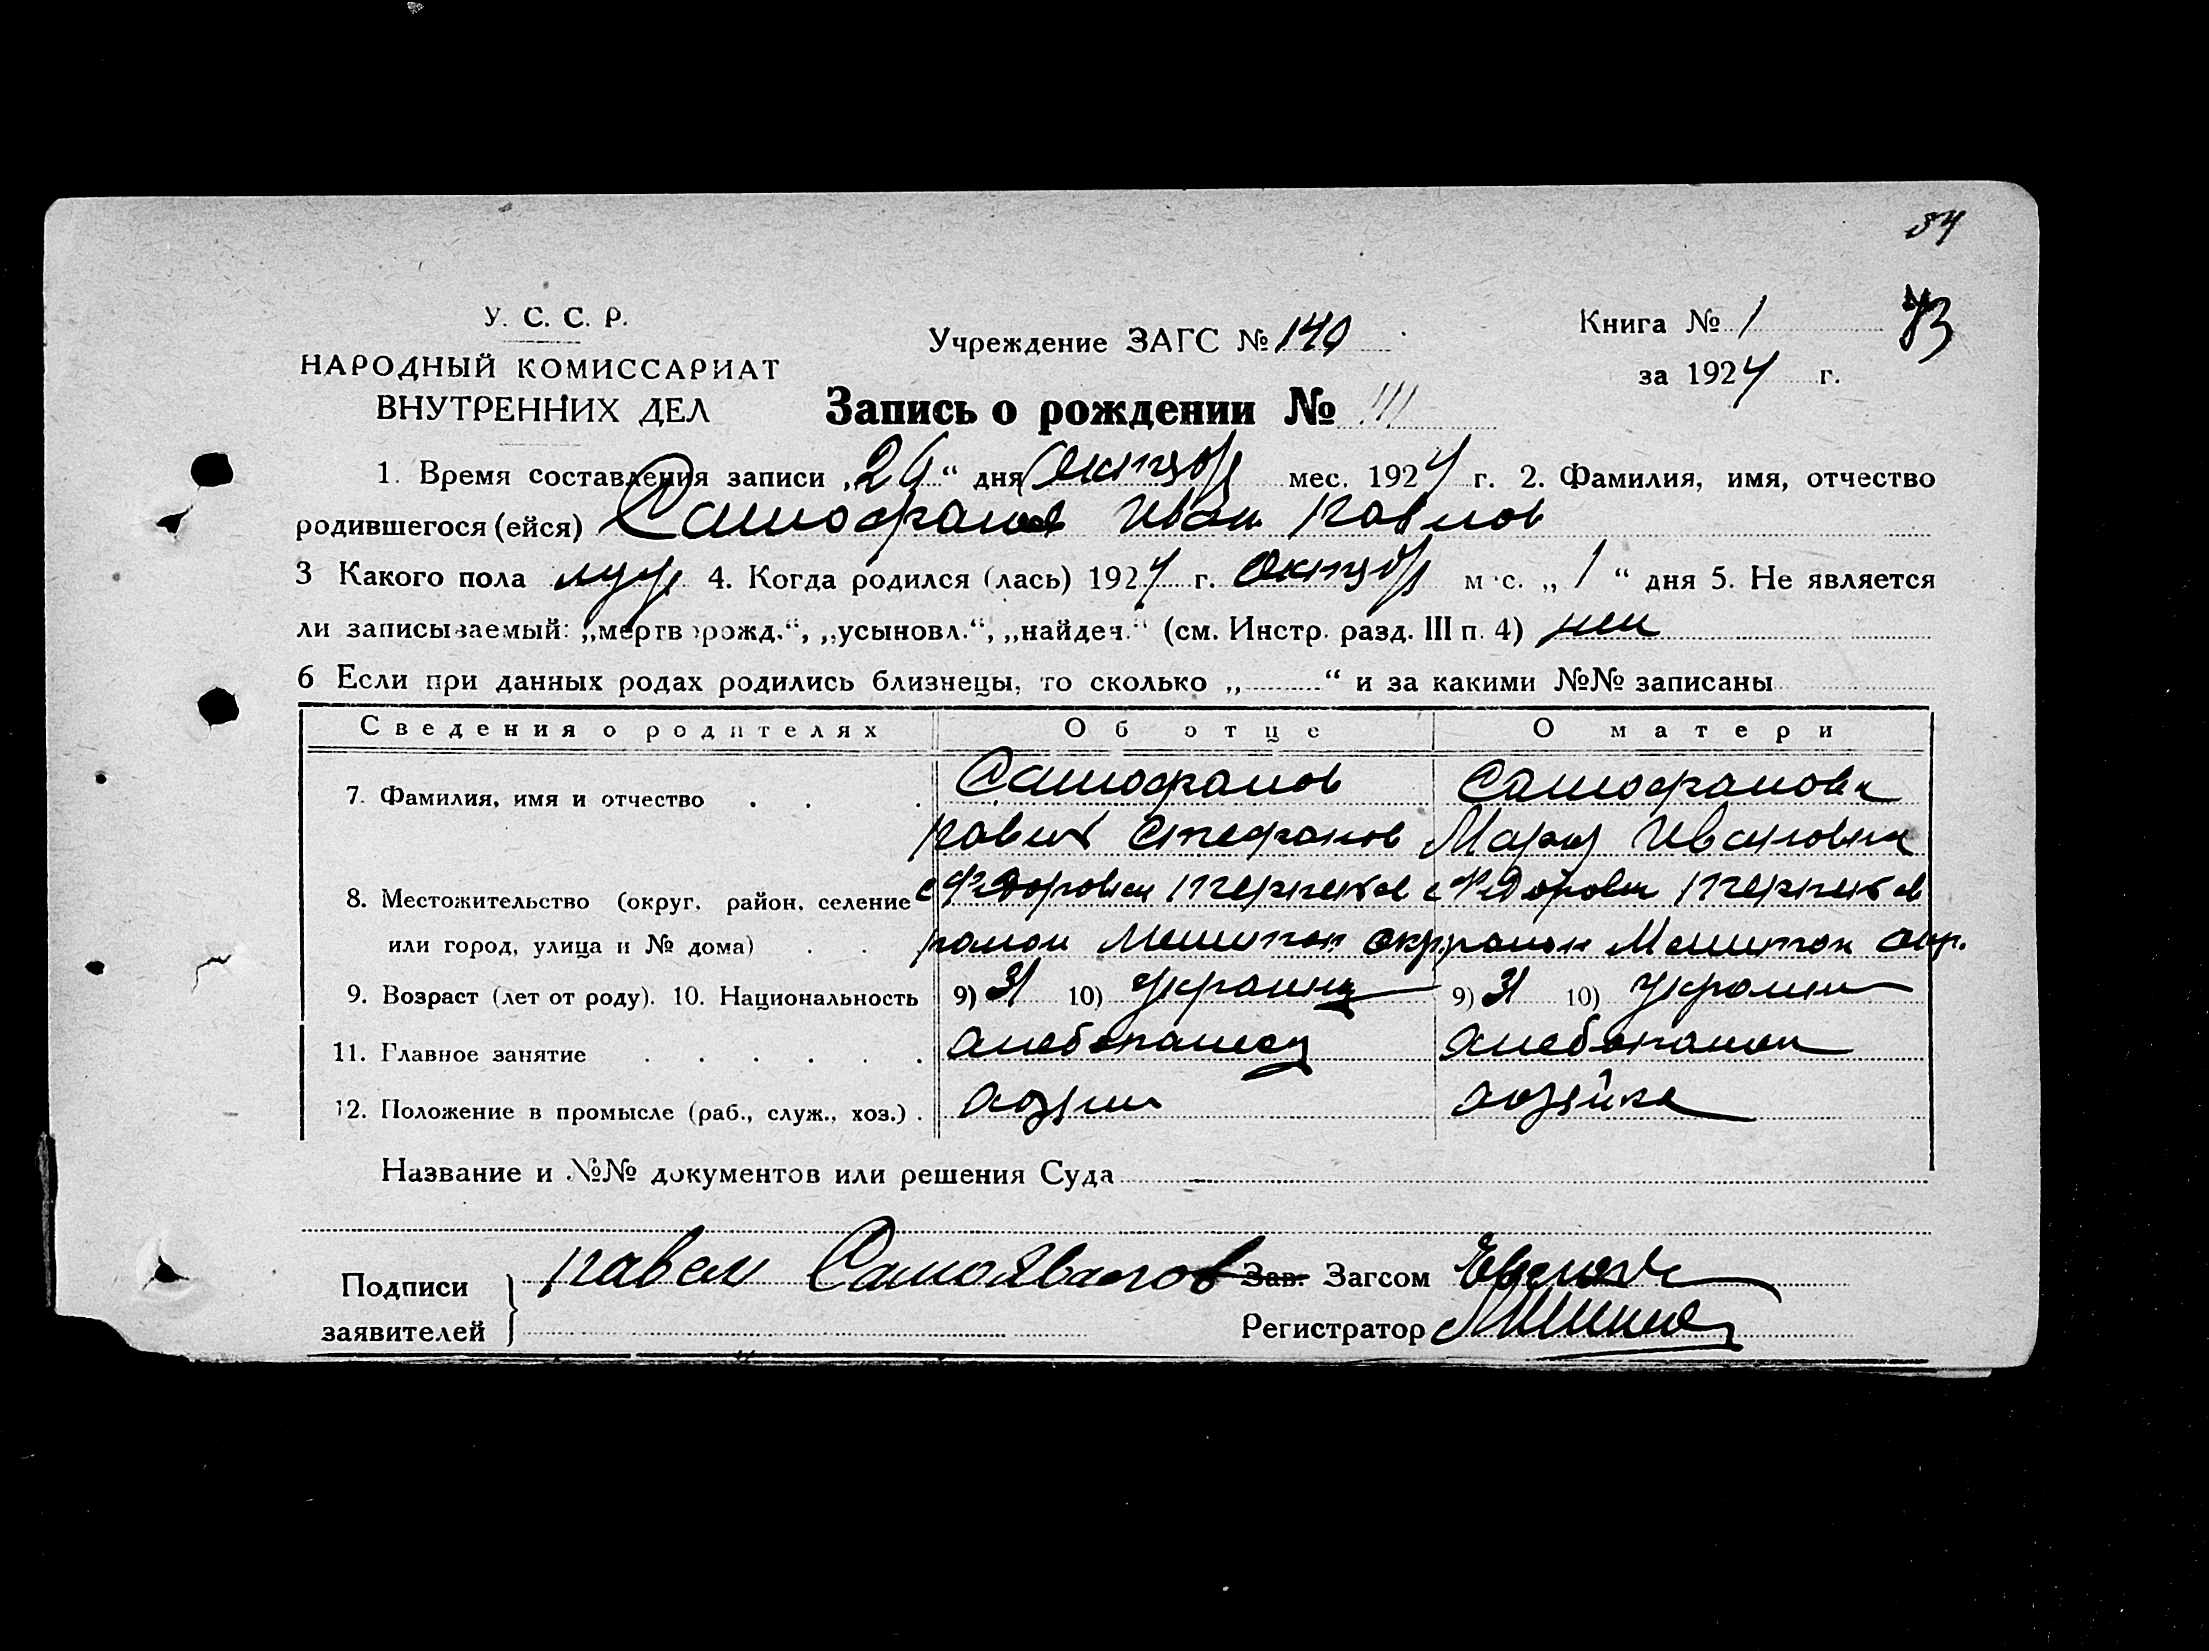 34
У. С. С. Р.
НАРОДНЫЙ КОМИССАРИАТ
ВНУТРЕННИХ ДЕЛ
Учреждение ЗАГС № 140
Книга № 1
73
за 1924 г.
Запись о рождении № 111
1. Время составления записи „26“ дня Октяб мес. 1924 г. 2. Фамилия, имя, отчество
родившегося (ейся) Самофалов Иван Павлов
3 Какого пола муж 4. Когда родился (лась) 1924 г. Октябр мес. „1“ дня 5. Не является
ли записываемый: „мертворожд.“, „усыновл.“, „найден.“ (см. Инстр. разд. III п. 4) нет
6 Если при данных родах родились близнецы, то сколько „ “ и за какими №№ записаны
Сведения о родителях Об отце О матери
7. Фамилия, имя и отчество Самофалов Самофалова
Павел Стефанов Мария Ивановна
8. Местожительство (округ, район, селение с Федоровка с Федоровка
или город, улица и № дома) район Мелитоп окр район Мелитоп окр.
9. Возраст (лет от роду). 10. Национальность 9) 31 10) Украинец 9) 31 10) Украин
11. Главное занятие хлебопашец хлебопашец
12. Положение в промысле (раб., служ., хоз.) хозяин хозяйка
Название и №№ документов или решения Суда
Подписи
заявителей
Павел Самохвалов
Зав. Загсом
Регистратор